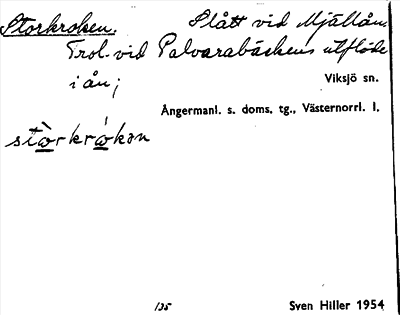 Storkroken. Slått vid Mjällån.
Trol. vid Palvarabäckens utflöde
i ån;
Viksjö sn.
Ångermanl. s. doms. tg., Västernorrl. l.
stòrkrókən
135
Sven Hiller 1954